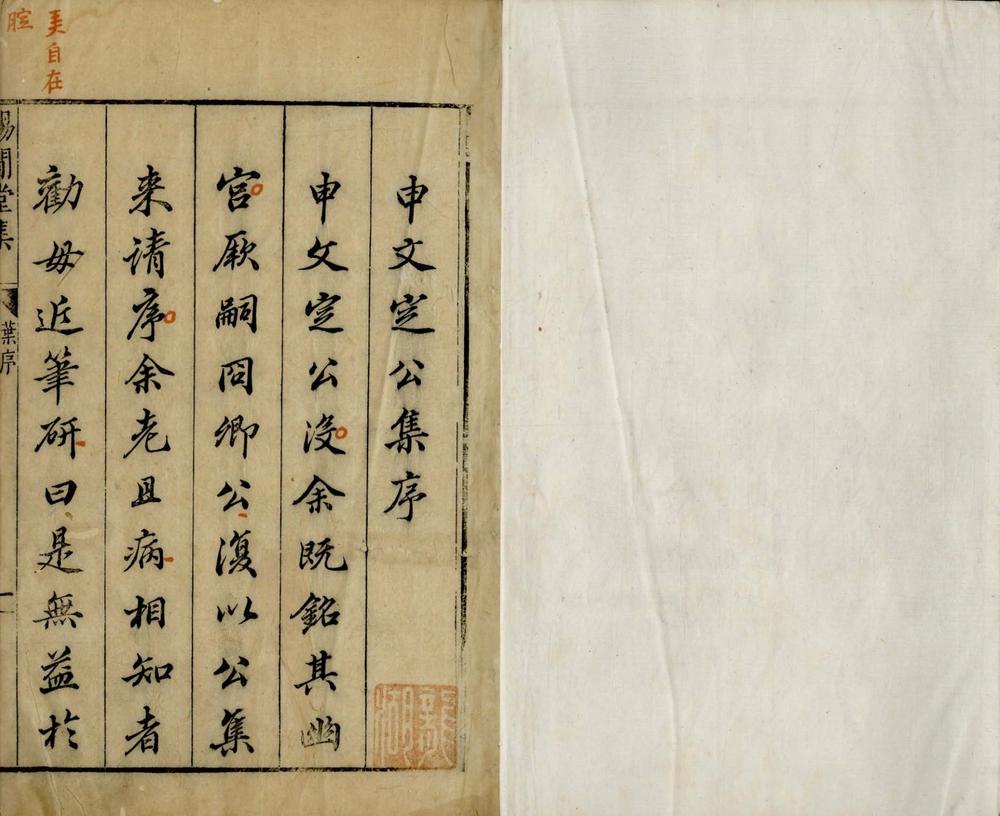 申文定公集序
申文定公没余既銘其幽
宮厥嗣冏卿公復以公集
来请序余老且病相知者
勸毋近筆研曰是無益於
賜閒堂集
葉序
一
自在
腔